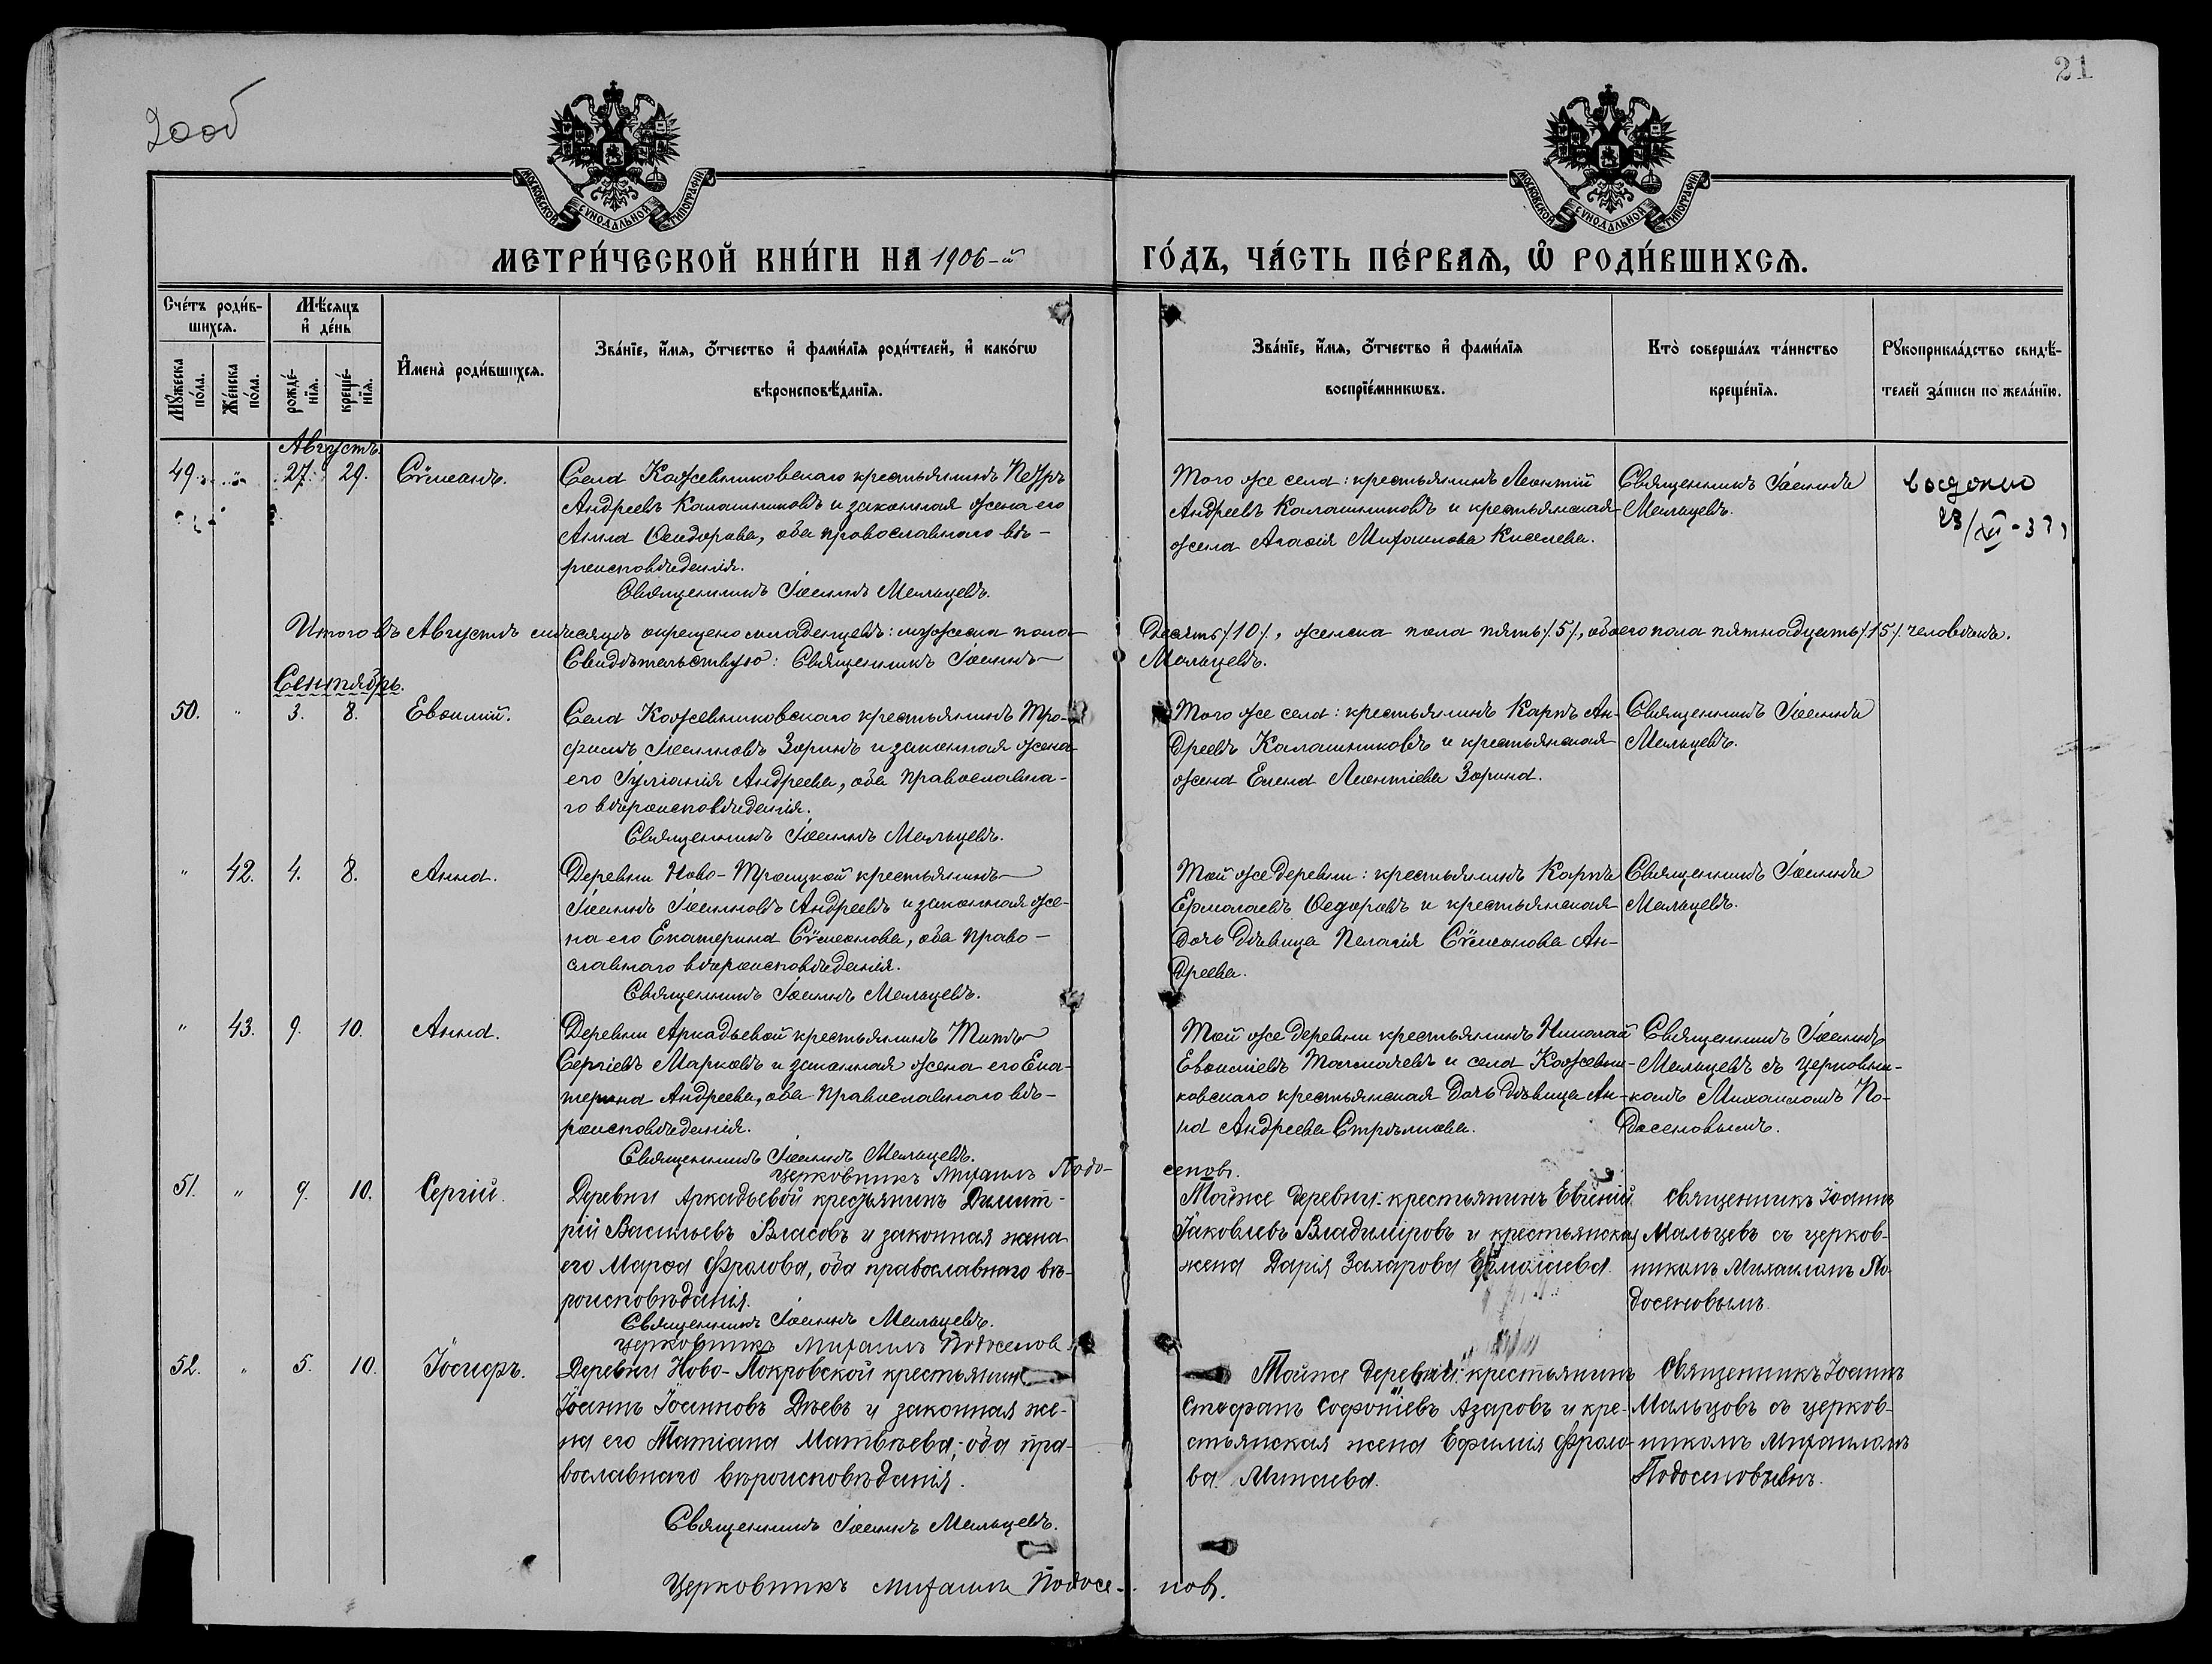 20об
21
МОСКОВСКОЙ СѴНОДАЛЬНОЙ ТИПОГРАФІИ
МОСКОВСКОЙ СѴНОДАЛЬНОЙ ТИПОГРАФІИ
МЕТРИ́ЧЕСКОЙ КНИ́ГИ НА 1906-й
ГО́ДЪ, ЧА́СТЬ ПЕ́РВАѦ, Ѡ РОДИ́ВШИХСѦ.
Сче́тъ роди́в-
шихсѧ.
Мꙋ́жеска
по́ла.
Же́нска
по́ла.
Мѣ́сѧцъ
и҆ де́нь
рожде́-
нїѧ.
креще́-
нїѧ.
И҆мена̀ роди́вшихсѧ.
Зва́нїе, и҆́мѧ, ѻ҆́тчество и҆ фами́лїѧ роди́телей, и҆ како́гѡ
вѣроисповѣ́данїѧ.
Зва́нїе, и҆́мѧ, ѻ҆́тчество и҆ фами́лїѧ
воспрїе́мникѡвъ.
Кто̀ соверша́лъ та́инство
креще́нїѧ.
Рꙋкоприкла́дство свидѣ́-
телей за́писи по жела́нїю.
Августъ.
49. " 27. 29. Сѷмеонъ.
Села Кожевниковскаго крестьянинъ Петръ
Андреевъ Калашниковъ и законная жена его
Анна Ѳеодорова, оба православнаго вѣ-
роисповѣданія.
Священникъ Іоаннъ Мальцевъ.
Того же села: крестьянинъ Леонтій
Андреевъ Калашниковъ и крестьянская
жена Агаѳія Михаилова Киселева.
Священникъ Іоаннъ
Мальцевъ.
23/XII-37
Итого въ Августѣ мѣсяцѣ окрещено младенцевъ: мужеска пола
Десять /10/, женска пола пять /5/, обоего пола пятнадцать /15/ человѣкъ.
Свидѣтельствую: Священникъ Іоаннъ
Мальцевъ.
Сентябрь.
50. " 3. 8. Евѳимій.
Села Кожевниковскаго крестьянинъ Тро-
фимъ Іоанновъ Зоринъ и законная жена
его Іуліанія Андреева, оба православна-
го вѣроисповѣданія.
Священникъ Іоаннъ Мальцевъ.
Того же села: крестьянинъ Карпъ Ан-
дреевъ Калашниковъ и крестьянская
жена Елена Леонтіева Зорина.
Священникъ Іоаннъ
Мальцевъ.
" 42. 4. 8. Анна.
Деревни Ново-Троицкой крестьянинъ
Іоаннъ Іоанновъ Андреевъ и законная же-
на его Екатерина Сѷмеонова, оба право-
славнаго вѣроисповѣданія.
Священникъ Іоаннъ Мальцевъ.
Той же деревни: крестьянинъ Карпъ
Ермолаевъ Ѳедоровъ и крестьянская
дочь дѣвица Пелагія Сѷмеонова Ан-
дреева.
Священникъ Іоаннъ
Мальцевъ.
" 43. 9. 10. Анна.
Деревни Аркадьевой крестьянинъ Титъ
Сергіевъ Марковъ и законная жена его Ека-
терина Андреева, оба православнаго вѣ-
роисповѣданія.
Священникъ Іоаннъ Мальцевъ.
Церковникъ Михаилъ Подо-
сеновъ.
Той же деревни крестьянинъ Николай
Евѳиміевъ Толмачевъ и села Кожевни-
ковскаго крестьянская дочь дѣвица Ан-
на Андреева Стрѣлкова.
Священникъ Іоаннъ
Мальцевъ съ церковни-
комъ Михаиломъ По-
досеновымъ.
51. " 9. 10. Сергій.
Деревни Аркадьевой крестьянинъ Димит-
рій Васильевъ Власовъ и законная жена
его Марѳа Фролова, оба православнаго вѣ-
роисповѣданія.
Священникъ Іоаннъ Мальцевъ.
Церковникъ Михаилъ Подосенов
Той же деревни: крестьянинъ Евгеній
Іаковлевъ Владиміровъ и крестьянская
жена Дарія Захарова Ермолаева.
Священникъ Іоаннъ
Мальцевъ съ церков-
никомъ Михаиломъ По-
досеновымъ.
52. " 5. 10. Іосифъ.
Деревни Ново-Покровской крестьянинъ
Іоаннъ Іоанновъ Дѣевъ и законная же-
на его Татіана Матвѣева, оба пра-
вославнаго вѣроисповѣданія.
Священникъ Іоаннъ Мальцевъ.
Церковникъ Михаилъ Подосе-
новъ.
Той же деревни: крестьянинъ
Стефанъ Софоніевъ Азаровъ и кре-
стьянская жена Ефимія Фроло-
ва Митаева.
Священникъ Іоаннъ
Мальцовъ съ церков-
никомъ Михаиломъ
Подосеновымъ.